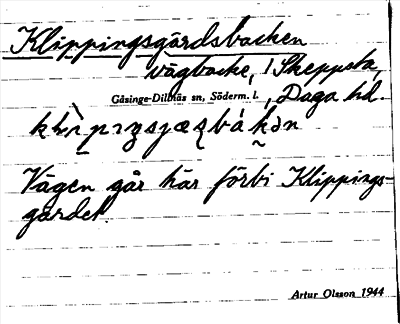 Klippingsgärdsbacken
vägbacke, i Skeppsta,
Gåsinge-Dillnäs sn, Söderm. l., Daga hd.
Vägen går här förbi Klippings-
gärdet.
Artur Olsson 1944